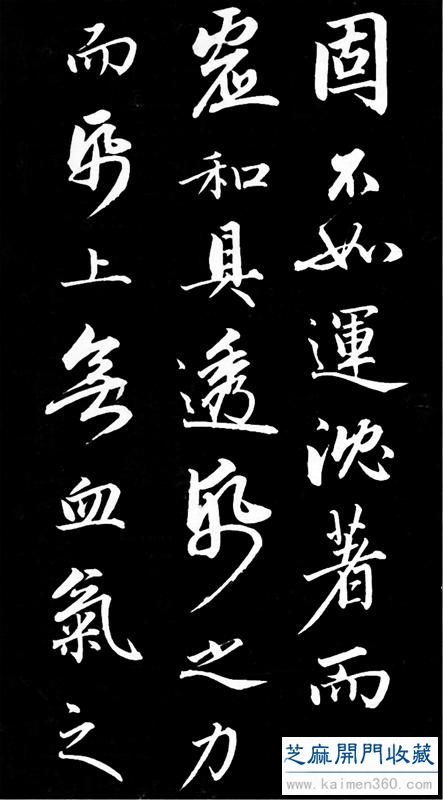 固不如運沈著而
虛和具透帋之力
而帋上無血氣之
芝麻開門收藏
www.kaimen360.com